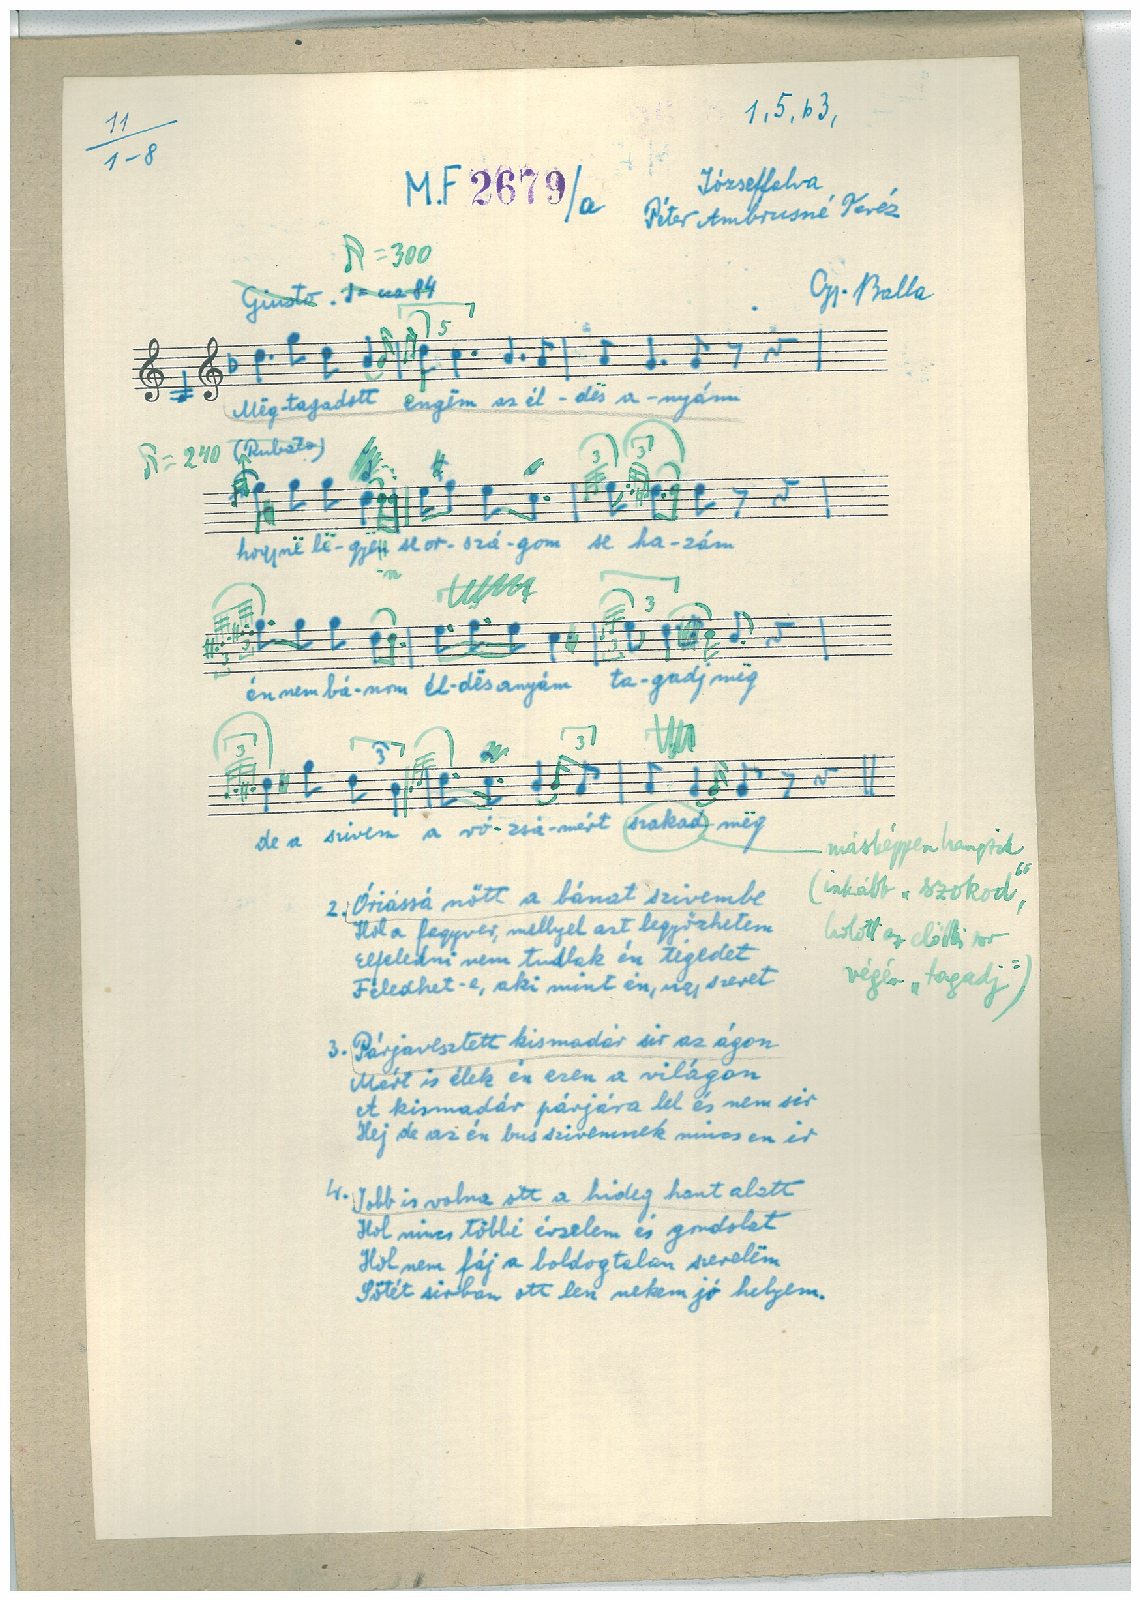 11
1-8
1, 5, b3,
M.F 2679/a
Józseffalva
Péter Ambrusné Veréz
♪ = 300
Giusto. ♩= ca 84
Gy. Balla
5
Mëg-tagadott engëm az él-dës a-nyám
♪ = 240 (Rubato)
3 3
hogy në lë-gyën se or-szá-gom se ha-zám
3 3 3 3
én nem bá-nom él-dësanyám ta-gadj mëg
3 3 3
de a szivem a ró-zsá-mért szakad mëg
másképpen hangzik
(inkább „szokod",
holott az előbbi sor
végén „tagadj")
2. Óriássá nőtt a bánat szivembe
Hol a fegyver, mellyel azt legyőzhetem
Elfeledni nem tudlak én tégedet
Feledhet-e, aki mint én, úgy szeret
3. Párjavesztett kismadár sir az ágon
Mért is élek én ezen a világon
A kismadár párjára lel és nem sir
Hej de az én bús szivemnek nincsen ir
4. Jobb is volna ott a hideg hant alatt
Hol nincs többé érzelem és gondolat
Hol nem fáj a boldogtalan szerelëm
Sötét sirban ott len nekem jó helyem.